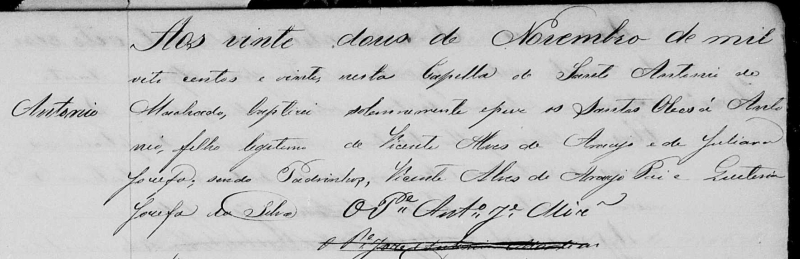 Aos vinte dous de Novembro de mil
oito centos e vinte, nesta Capella de Santo Antonio do
Antonio Machado, baptizei solemnemente e puz os Santos Oleos á Anto
nio, filho legitimo de Vicente Alves de Araujo e de Juliana
Josefa; sendo Padrinhos, Vicente Alves de Araujo Pai e Quiteria
Josefa da Silva O Pe. Anto. Je.
O Pe. José